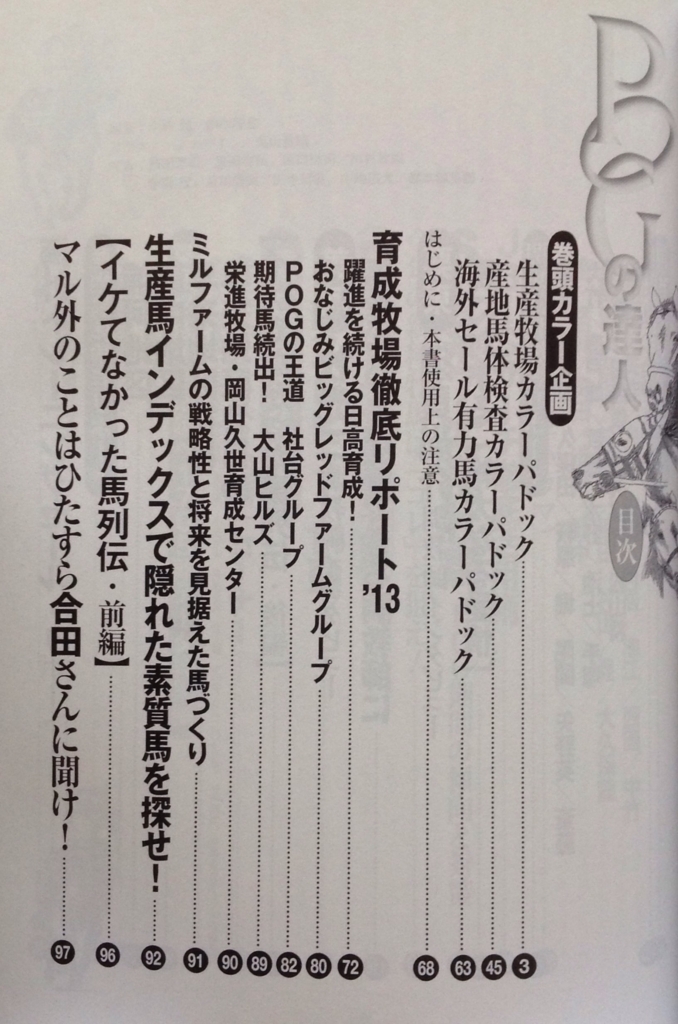 POGの達人
目次
巻頭カラー企画
生産牧場カラーパドック……3
産地馬体検査カラーパドック……45
海外セール有力馬カラーパドック……63
はじめに・本書使用上の注意……68
育成牧場徹底リポート'13
躍進を続ける日高育成！……72
おなじみビッグレッドファームグループ……80
POGの王道 社台グループ……82
期待馬続出！ 大山ヒルズ……89
栄進牧場・岡山久世育成センター……90
ミルファームの戦略性と将来を見据えた馬づくり……91
生産馬インデックスで隠れた素質馬を探せ！……92
【イケてなかった馬列伝・前編】……96
マル外のことはひたすら合田さんに聞け！……97